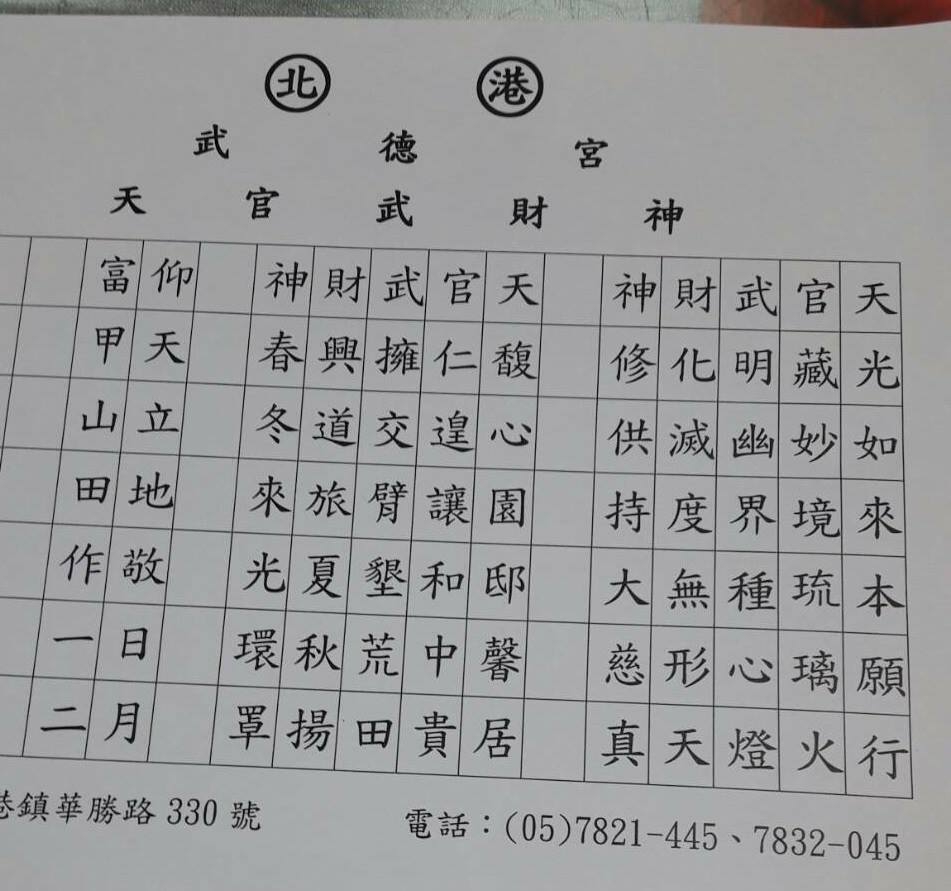 北港
武德宮
天官武財神
天光如來本願行
官藏妙境琉璃火
武明幽界種心燈
財化滅度無形天
神修供持大慈真
天馥心園邸馨居
官仁遑讓和中貴
武擁交臂墾荒田
財興道旅夏秋揚
神春冬來光環罩
仰天立地敬日月
富甲山田作一二
港鎮華勝路 330 號
電話：(05)7821-445、7832-045